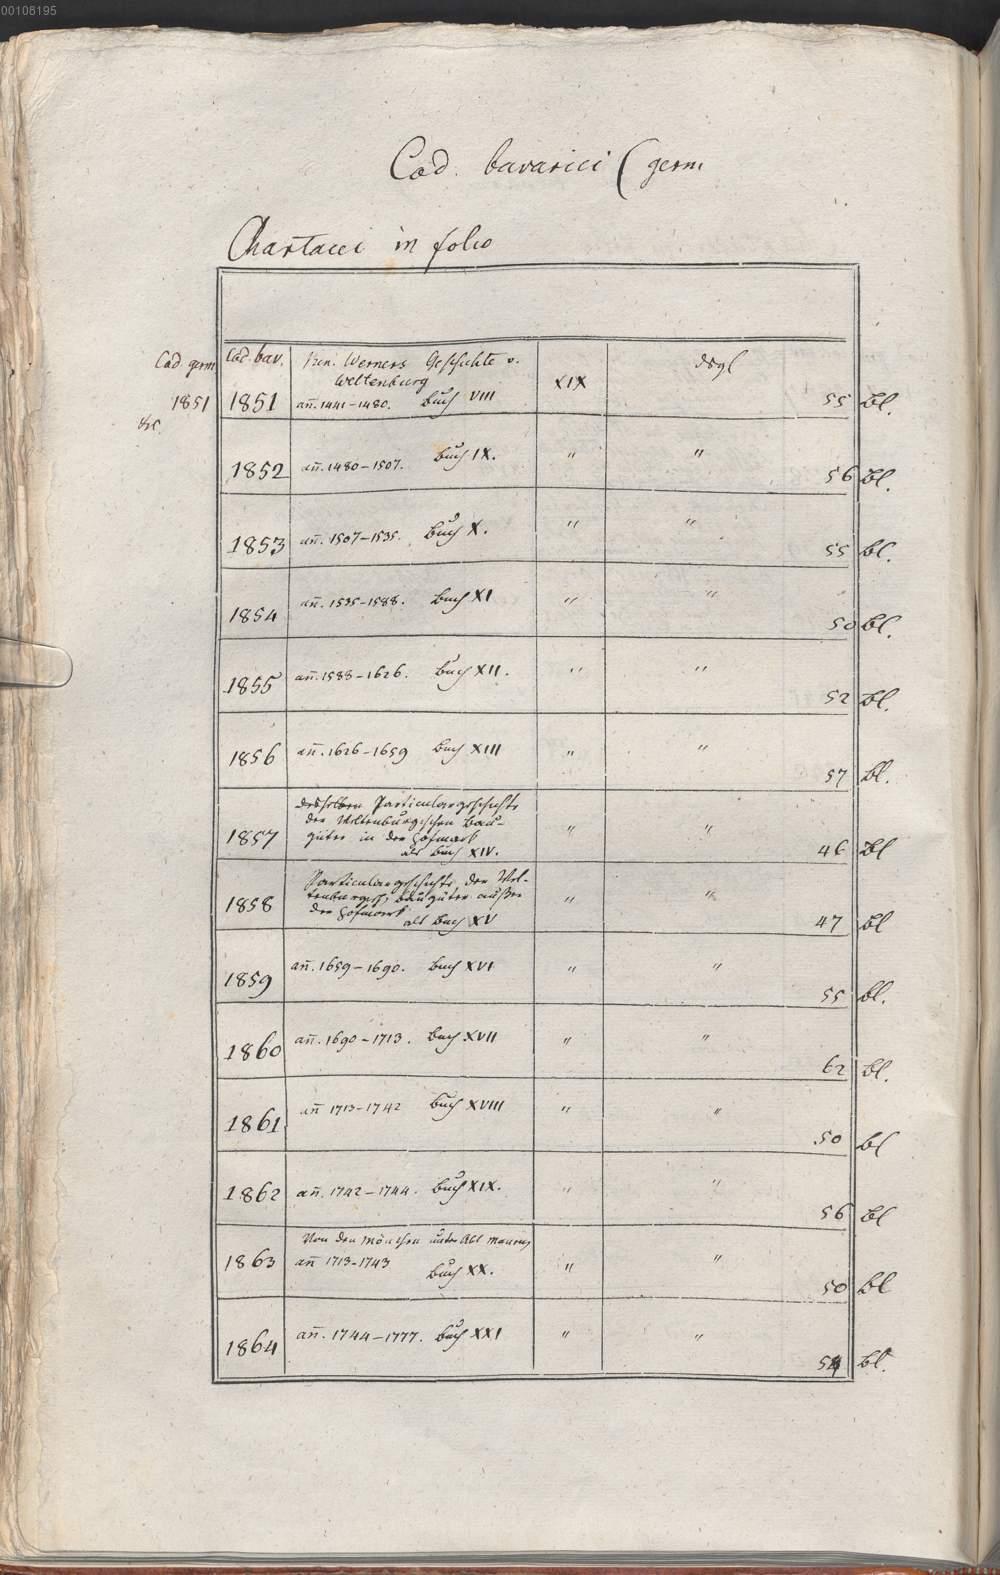 00108195
Cod. bavarici (germ
Chartacei in folio
Cod. germ Cod. bav. Ben. Werners Geschichte v. XIX dsgl
Weltenburg
1851 1851 añ. 1441-1480. Buch VIII 55 Bl.
&c.
1852 añ. 1480-1507. Buch IX. " " 56 Bl.
1853 añ. 1507-1535. Buch X. " " 55 bl.
1854 añ. 1535-1588. Buch XI " " 50 bl.
1855 añ. 1588-1626. Buch XII. " " 52 bl.
1856 añ. 1626-1659 Buch XIII " " 57 bl.
desselben Particulargeschichte
der Weltenburgischen Bau-
1857 güter in der Hofmark " " 46 Bl
als Buch XIV.
Particulargeschichte der Wel-
tenburgisch. Baugüter außer
1858 der Hofmark " " 47 bl
als Buch XV
1859 añ. 1659-1690. Buch XVI " " 55 bl.
1860 añ. 1690-1713. Buch XVII " " 62 bl.
1861 añ 1713-1742 Buch XVIII " " 50 bl
1862 añ. 1742-1744. Buch XIX. " " 56 Bl
Von den Mönchen unter Abt Maurus
1863 añ 1713-1743 " " 50 Bl
Buch XX.
1864 añ. 1744-1777. Buch XXI " " bl.